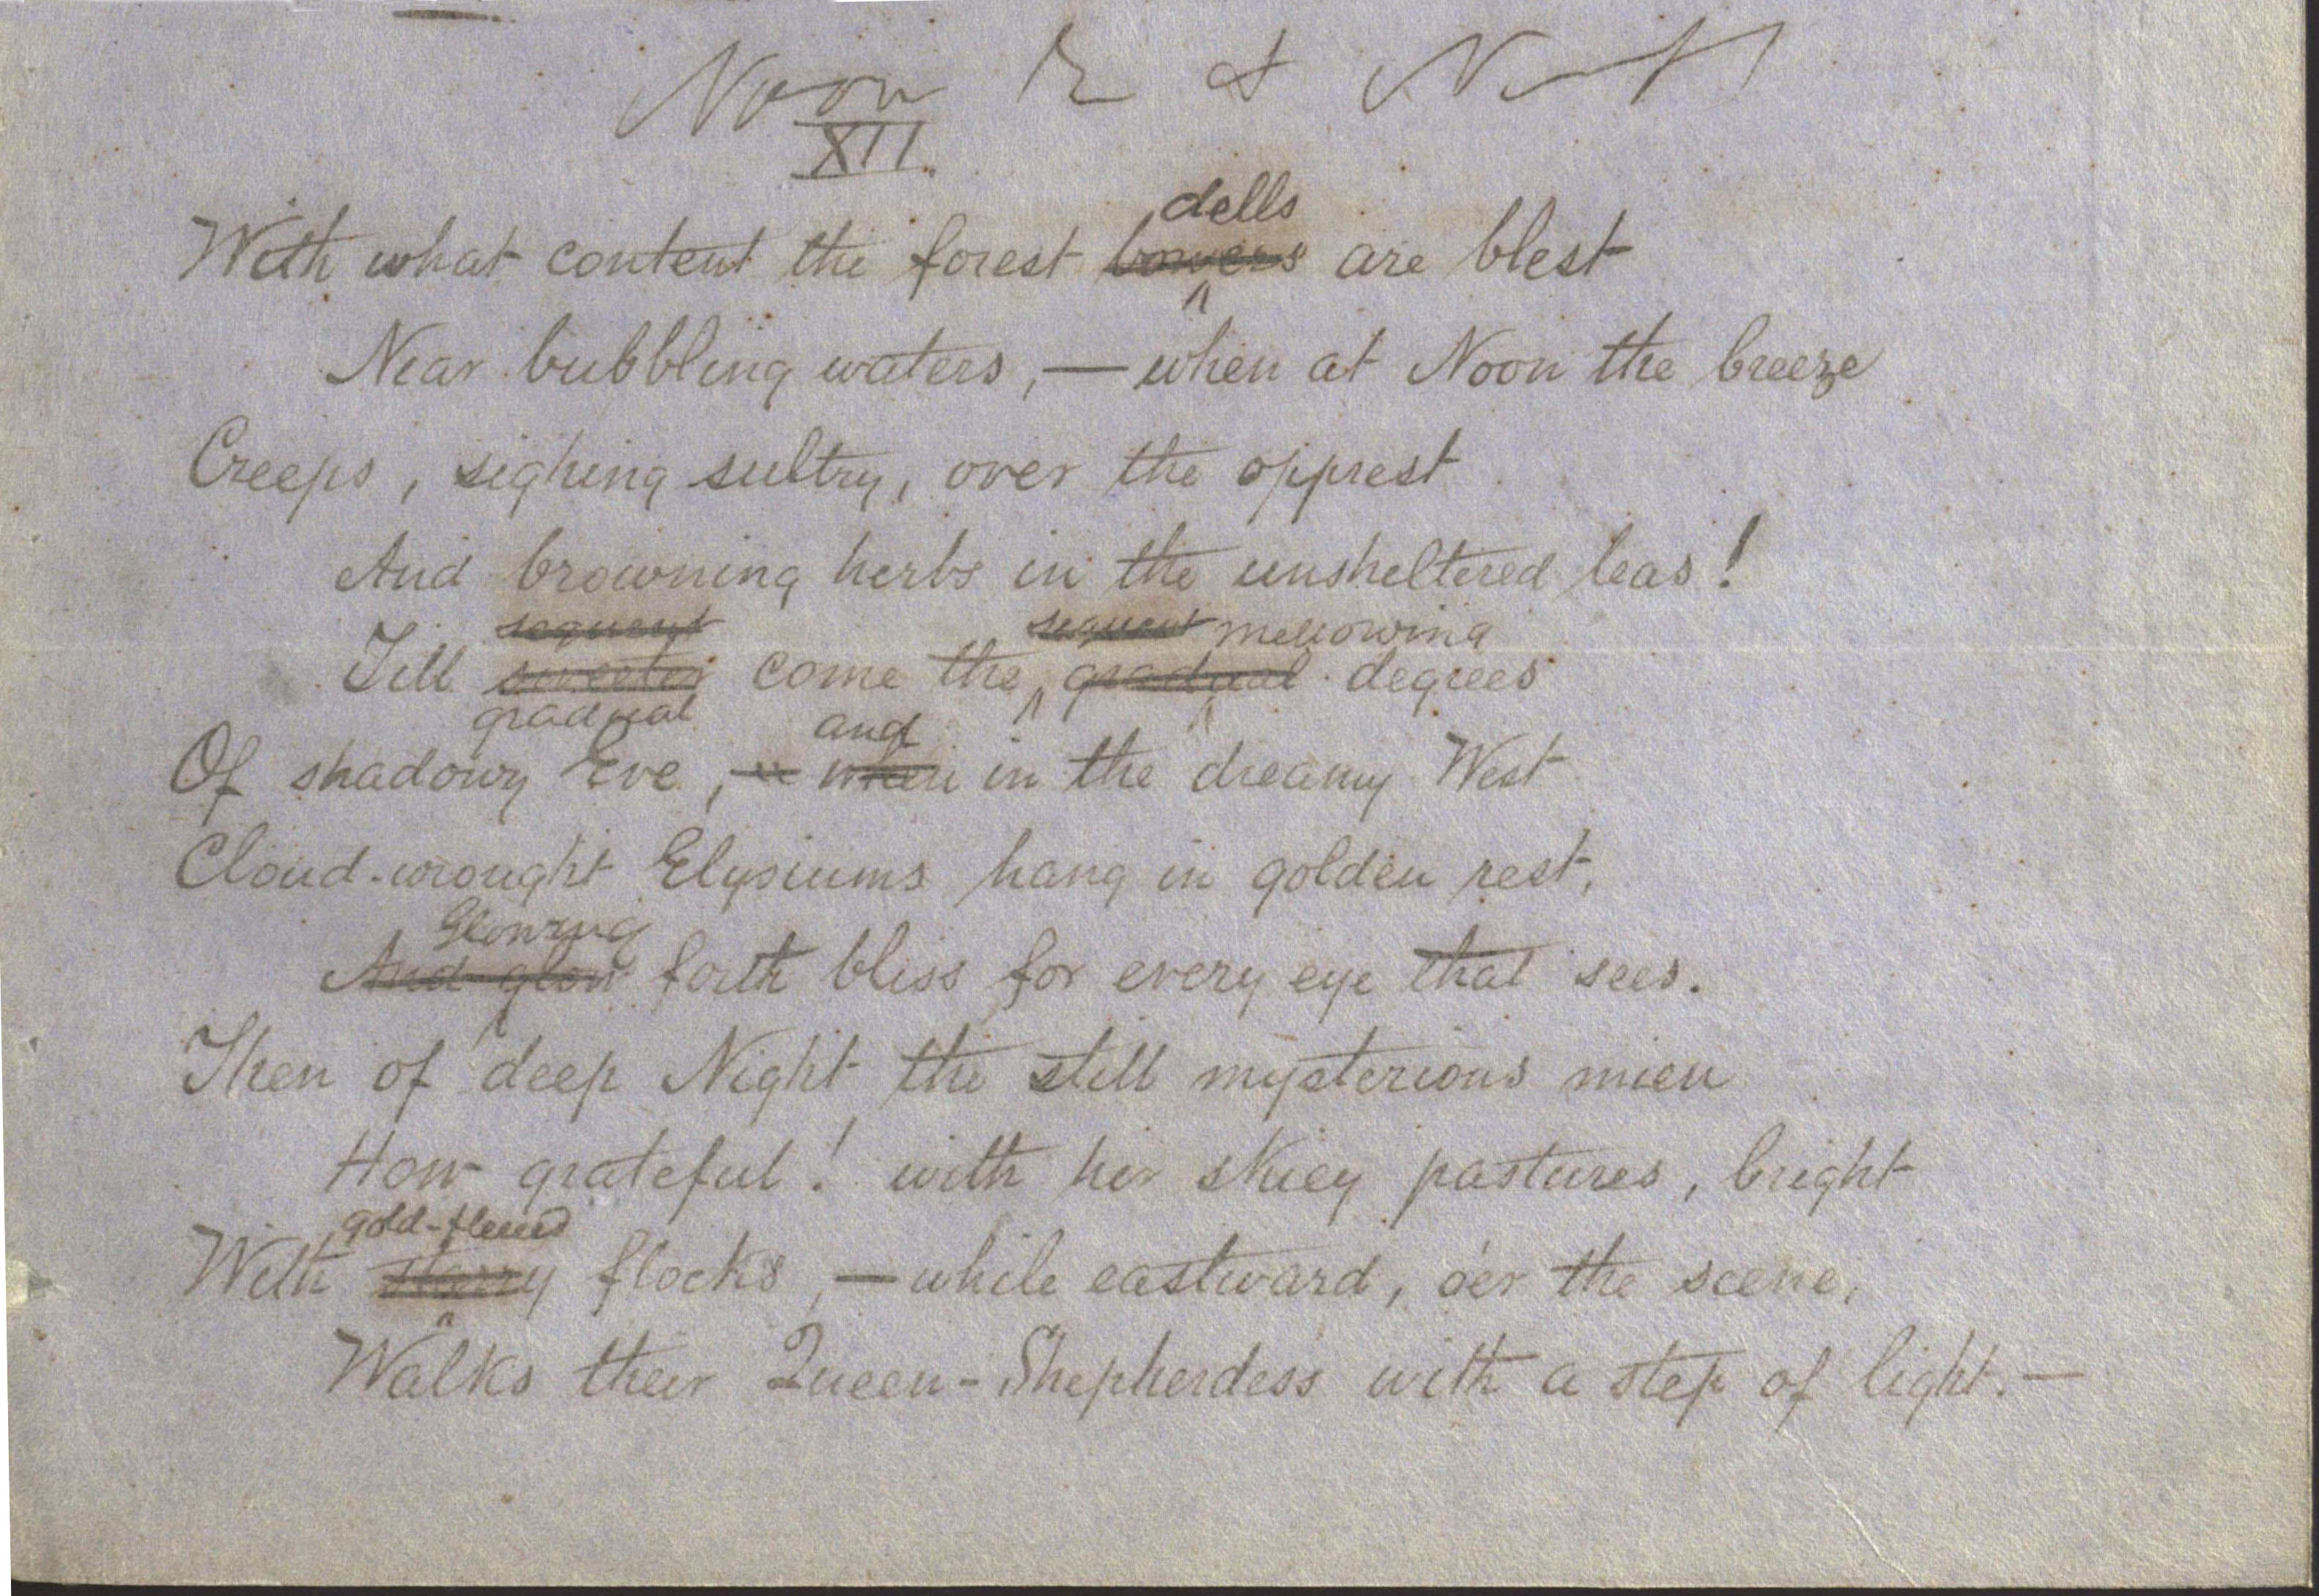 Noon & Night
XII.
dells
With what content the forest bowers are blest
Near bubbling waters, — when at Noon the breeze
Creeps, sighing sultry, over the opprest
And browning herbs in the unsheltered leas!
sequent sequent mellowing
Till sweetly come the gradual degrees
gradual and
Of shadowy Eve, — when in the dreamy West
Cloud-wrought Elysiums hang in golden rest,
Glowing
And glow forth bliss for every eye that sees.
Then of deep Night the still mysterious mien
How grateful! with her skiey pastures, bright
gold-fleeced
With starry flocks, — while eastward, o'er the scene,
Walks their Queen-Shepherdess with a step of light. —